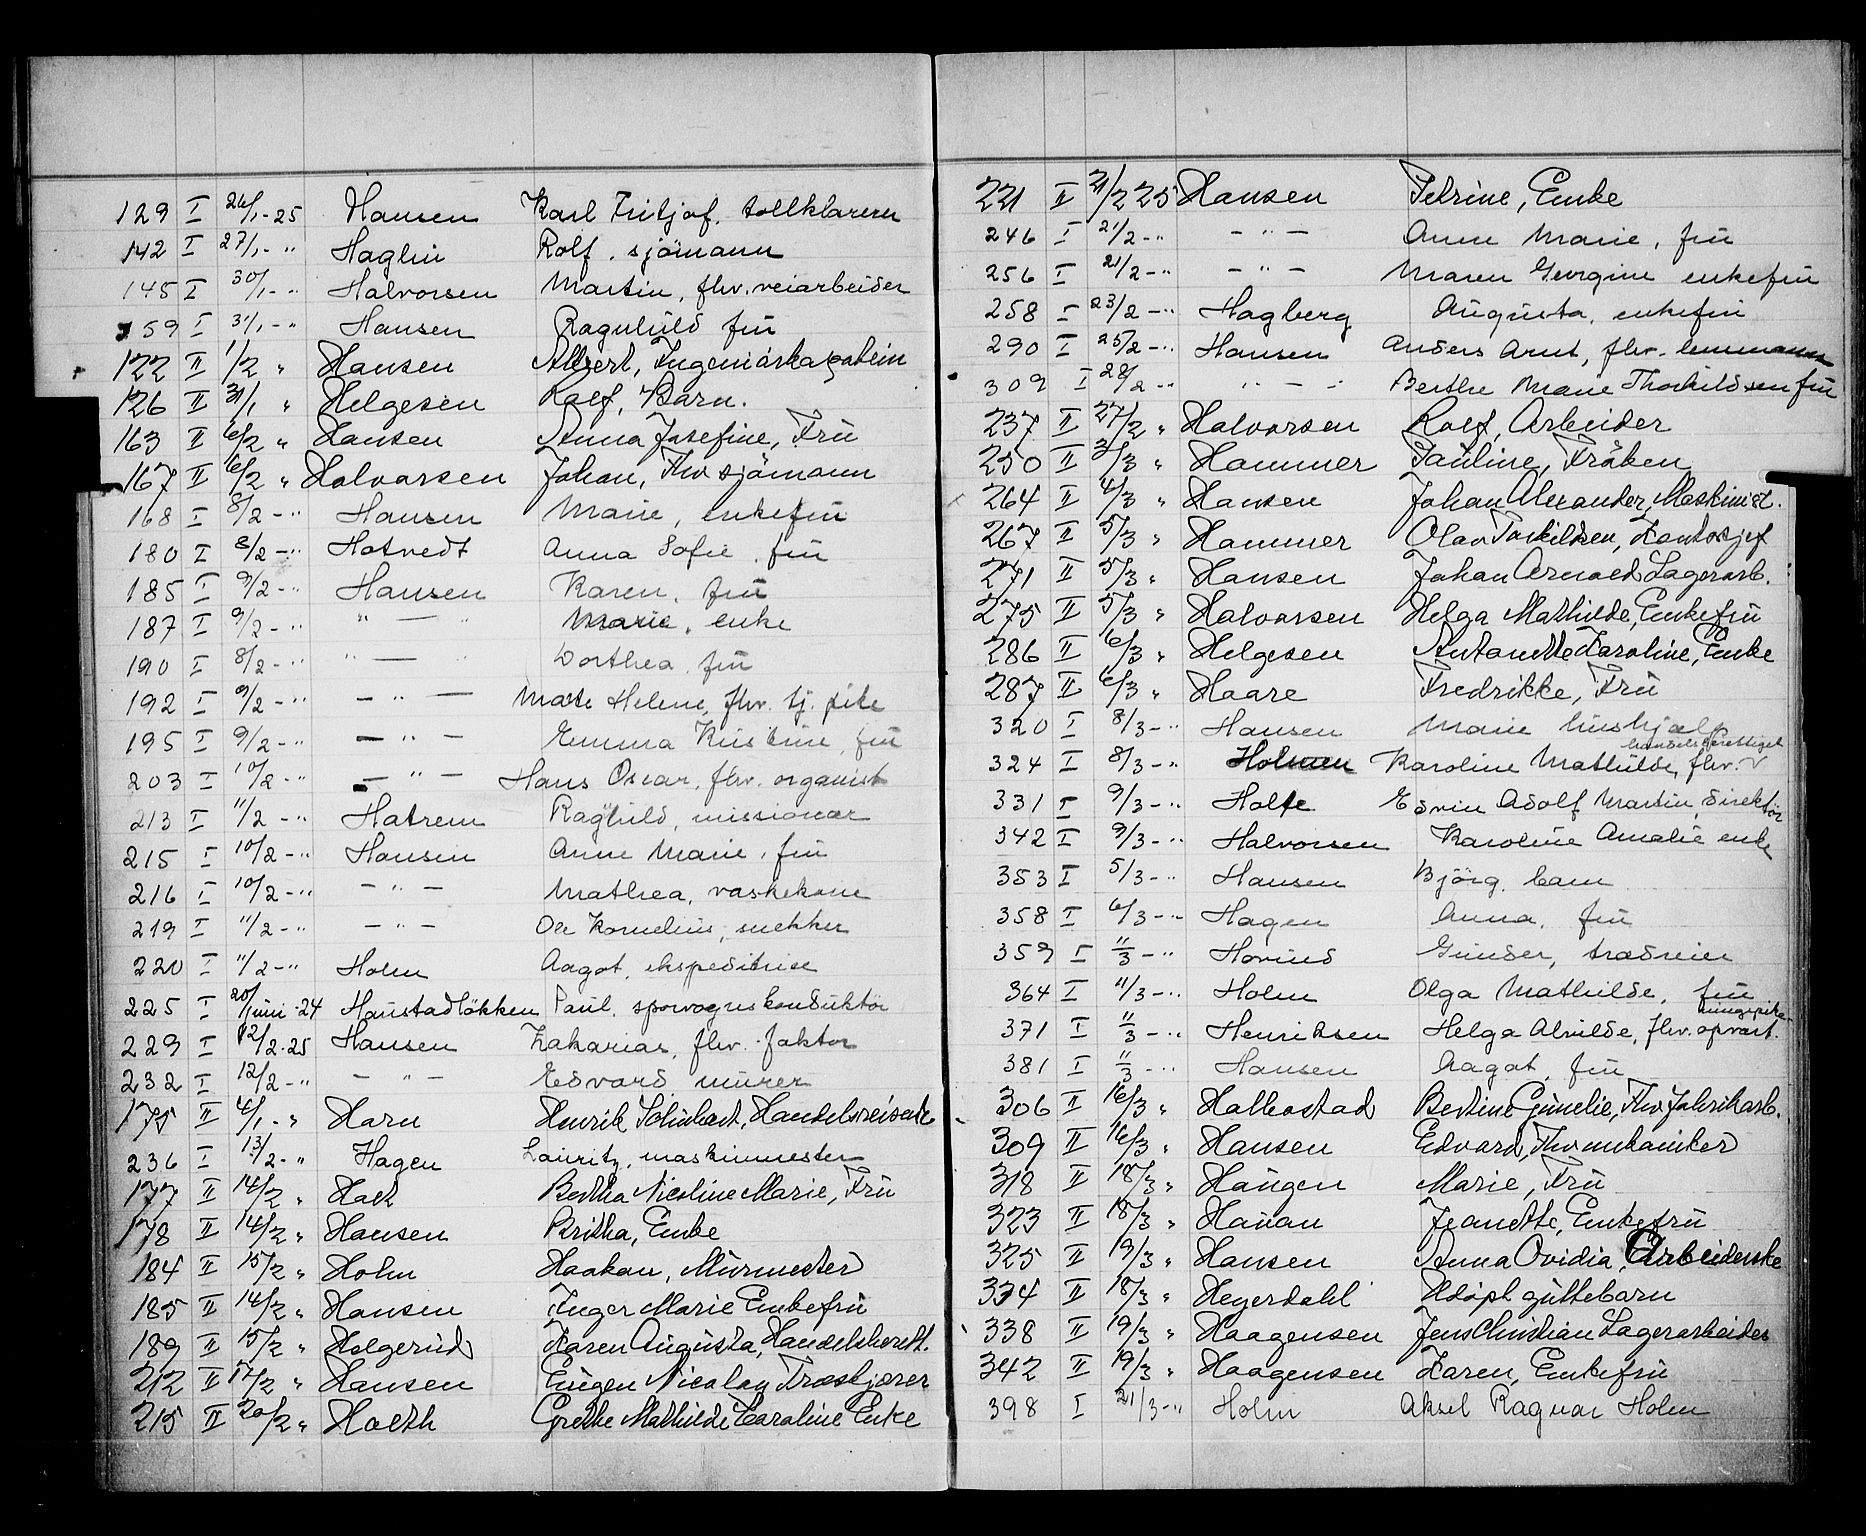 129 I 26/1-25 Hansen Karl Fritjof, tollklarerer
142 I 27/1-" Haglin Rolf, sjömann
145 I 30/1-" Halvorsen Martin, fhv. veiarbeider
159 I 31/1-" Hansen Ragnhild frü
122 II 1/2 " Hansen Albert,
126 II 31/1 " Helgesen Rolf, Barn.
163 II 6/2 " Hansen Anna Josefine, Frü
167 II 6/2 " Halvorsen Johan, Fhv sjömann
168 I 8/2-" Hansen Marie, enkefrü
180 I 8/2-" Hotvedt Anna Sofie, frü
185 I 9/2-" Hansen Karen, frü
187 I 9/2-" " — " Marie, enke
190 I 8/2-" " — " Dorthea, frü
192 I 9/2-" — " — Mate Helene, fhv. tj. pike
195 I 9/2-" — " — Emma Kristine, frü
203 I 10/2-" — " — Hans Oscar, fhv. organist
213 I 11/2-" Hatrem Raghild, missionær
215 I 10/2-" Hansen Anne Marie, frü
216 I 10/2-" — " — Mathea, vaskekone
219 I 11/2-" — " — Ole Kornelius, snekker
220 I 11/2-" Holm Aagot, ekspeditrise
225 I 20/juni-24 Haustadløkken Paul, sporvognskonduktör
229 I 12/2-25 Hansen Zakarias, fhv. faktor
232 I 12/2-" — " — Edvard mürer
175 II 4/1-" Harn Henrik Schubert, Handelsreisende
236 I 13/2-" Hagen Lauritz, maskinmester
177 II 14/2 " Holt Bertha Nicoline Marie, Frü
178 II 14/2 " Hansen Britha, Enke
184 II 15/2 " Holm Haakon, Mürmester
185 II 14/2 " Hansen Inger Marie Enkefrü
189 II 15/2 " Helgerüd Karen Augusta, Handelsberett.
212 II 17/2 " Hansen Eugen Nicolay Træskjærer
215 II 20/2 " Holth Grethe Mathilde Karoline Enke
221 II 21/2 25 Hansen Petrine, Enke
246 I 21/2-" — " — Anne Marie, frü
256 I 21/2-" — " — Maren Georgine enkefrü
258 I 23/2-" Hagberg Augusta, enkefrü
290 I 25/2-" Hansen Anders Arnt, fhv.
309 I 28/2-" " — " Berthe Marie Thorkildsen frü
237 II 27/2 " Halvorsen Rolf, Arbeider
250 II 2/3 " Hammer Pauline, Fröken
264 II 4/3 " Hansen Johan Alexander, Maskinist.
267 II 5/3 " Hammer Olav Torkildsen, Kontorsjef
271 II 5/3 " Hansen Johan Arnold Lagerarb.
275 II 5/3 " Halvorsen Helga Mathilde, Enkefrü
286 II 6/3 " Helgesen Antonette Karoline, Enke
287 II 6/3 " Haare Fredrikke, Frü
320 I 8/3-" Hansen Marie hushjælp
324 I 8/3-" Holmen Karoline Mathilde, fhv. handelsberettiget
331 I 9/3-" Holte Edvin Adolf Martin, direktör
342 I 9/3-" Halvorsen Karoline Amalie enke
353 I 5/3-" Hansen Björg, barn
358 I 6/3-" Hagen Anna, frü
359 I 11/3-" Hovind Gunder, trædreier
364 I 11/3-" Holm Olga Mathilde, frü
371 I 11/3-" Henriksen Helga Alvilde, fhv. opvart. ningspike
381 I 11/3-" Hansen Aagot, frü
306 II 16/3 " Halkostad Bertine Gunelie, Fhv fabrikarb.
309 II 16/3 " Hansen Edvard, Fhv mekaniker
318 II 18/3 " Haugen Marie, Frü
323 II 18/3 " Hauan Jeanette, Enkefrü
325 II 19/3 " Hansen Anna Ovidia, Arbeiderske
334 II 18/3 " Heyerdahl Udöpt guttebarn
338 II 19/3 " Haagensen Jens Christian Lagerarbeider
342 II 19/3 " Haagensen Karen, Enkefrü
398 I 21/3-" Holm Aksel Ragnar Holm